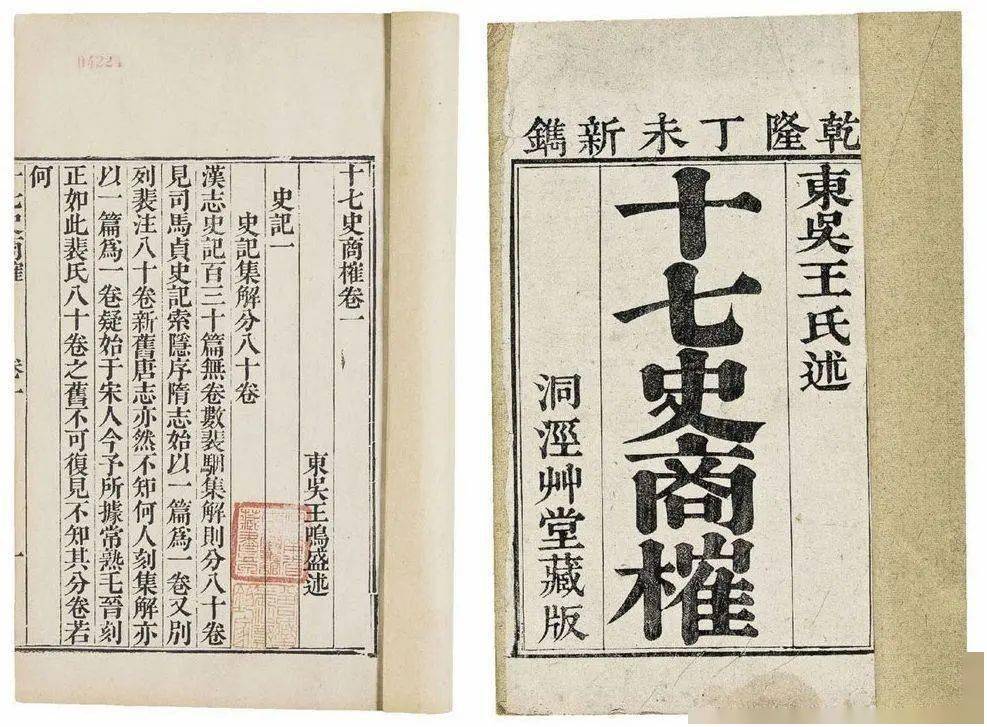 乾隆丁未新鐫
東吳王氏述
十七史商榷
洞涇艸堂藏版
04224
十七史商榷卷一
東吳王鳴盛述
史記一
史記集解分八十卷
漢志史記百三十篇無卷數裴駰集解則分八十卷
見司馬貞史記索隱序隋志始以一篇爲一卷又別
列裴注八十卷新舊唐志亦然不知何人刻集解亦
以一篇爲一卷疑始于宋人今予所據常熟毛晉刻
正如此裴氏八十卷之舊不可復見不知其分卷若
何
十七史商榷 卷一 一